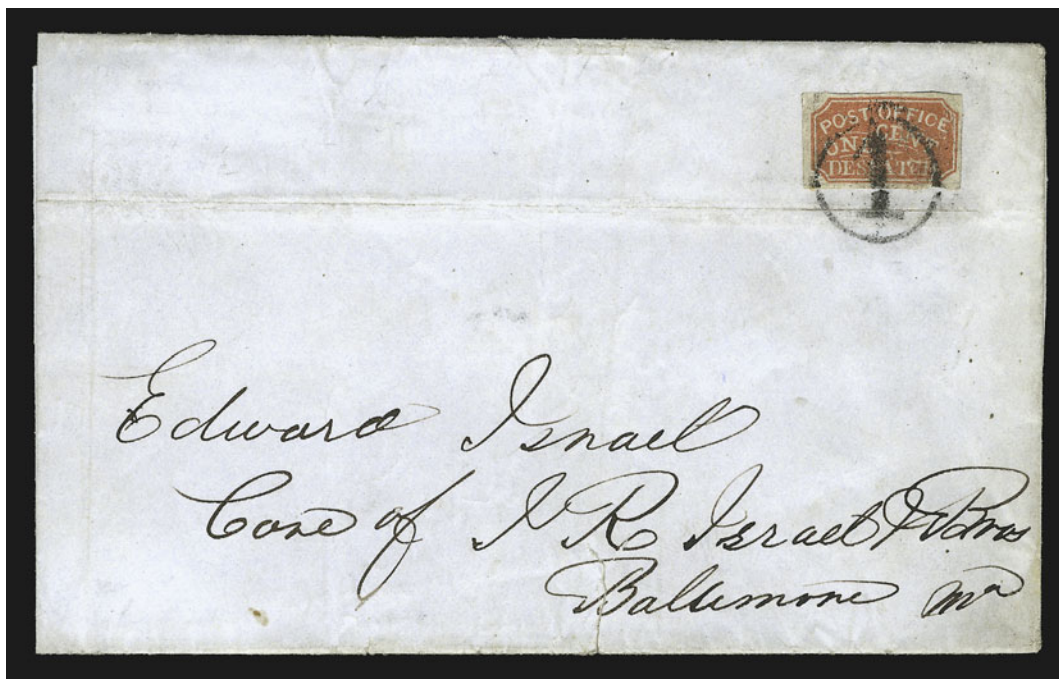 POST OFFICE
ONE CENT
DESPATCH
1
Edward Israel
Care of J R Israel & Bros
Baltimore Md